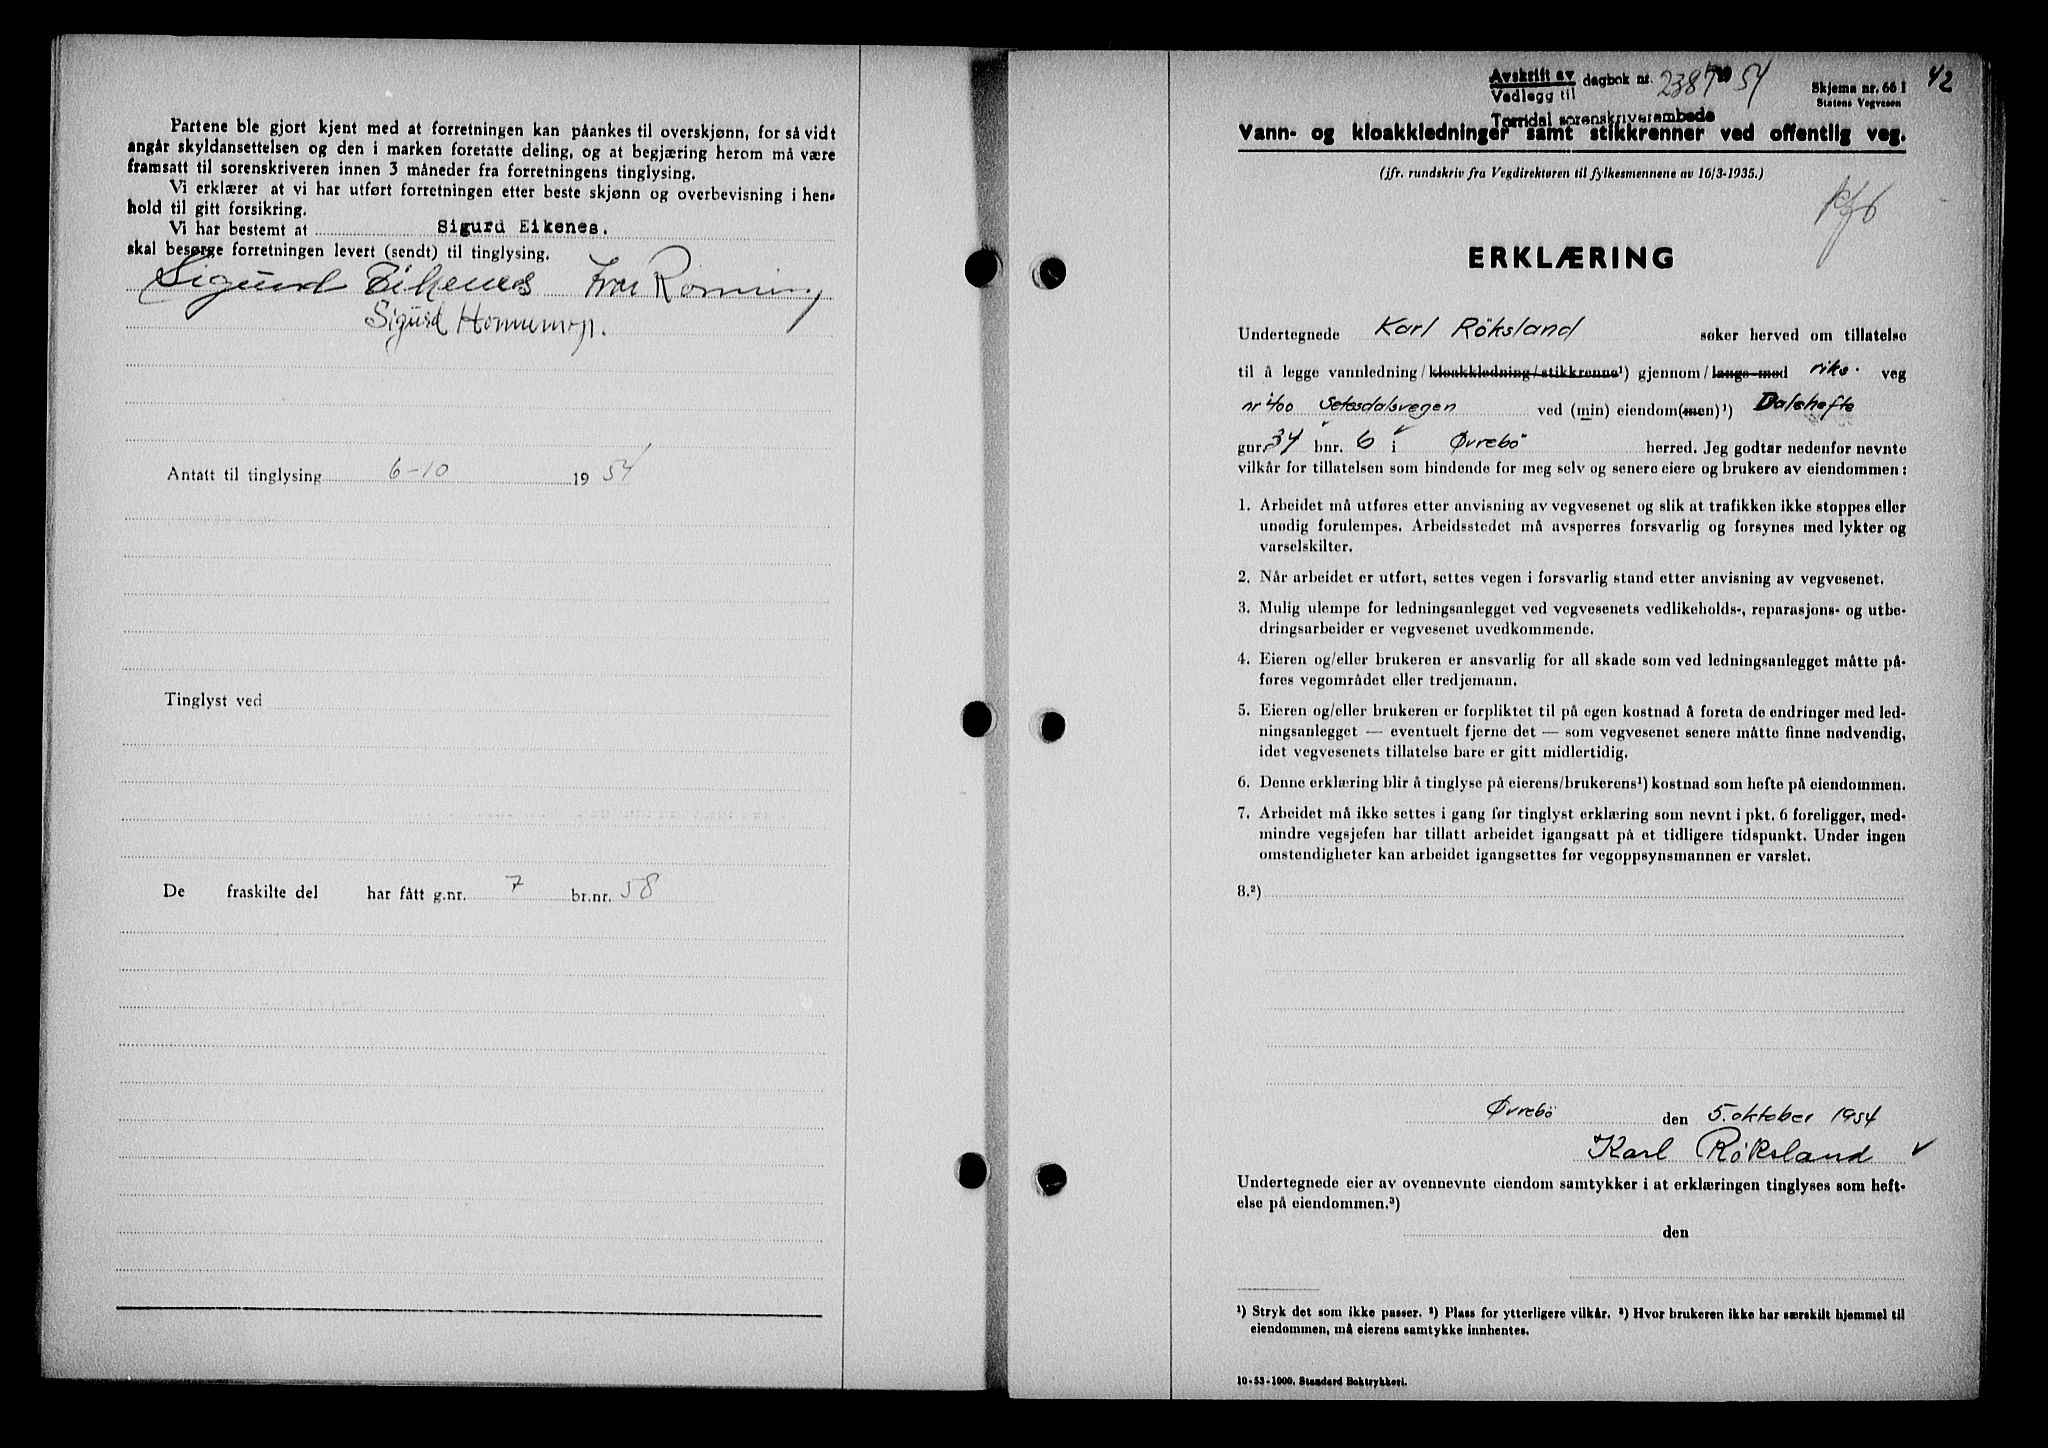 Partene ble gjort kjent med at forretningen kan påankes til overskjønn, for så vidt
angår skyldansettelsen og den i marken foretatte deling, og at begjæring herom må være
framsatt til sorenskriveren innen 3 måneder fra forretningens tinglysing.
Vi erklærer at vi har utført forretningen etter beste skjønn og overbevisning i hen-
hold til gitt forsikring.
Vi har bestemt at Sigurd Eikenes.
skal besørge forretningen levert (sendt) til tinglysing.
Sigurd Eikenes Ivar Rönning
Sigurd
Antatt til tinglysing 6-10 1954
Tinglyst ved
De fraskilte del har fått g.nr. 7 br.nr. 58
42
Avskrift av
Vedlegg til dagbok nr. 2387 19 54
Torridal sorenskriverembede
Skjema nr. 66 1
Statens Vegvesen
Vann- og kloakkledninger samt stikkrenner ved offentlig veg.
(jfr. rundskriv fra Vegdirektøren til fylkesmennene av 16/3-1935.)
ERKLÆRING
Undertegnede Karl Röksland søker herved om tillatelse
til å legge vannledning/kloakkledning/stikkrenne¹) gjennom/langs med riks- veg
nr 400 Setesdalsvegen ved (min) eiendom(men)¹) Dalehefte
gnr. 34 bnr. 6 i Øvrebö herred. Jeg godtar nedenfor nevnte
vilkår for tillatelsen som bindende for meg selv og senere eiere og brukere av eiendommen:
1. Arbeidet må utføres etter anvisning av vegvesenet og slik at trafikken ikke stoppes eller
unødig forulempes. Arbeidsstedet må avsperres forsvarlig og forsynes med lykter og
varselskilter.
2. Når arbeidet er utført, settes vegen i forsvarlig stand etter anvisning av vegvesenet.
3. Mulig ulempe for ledningsanlegget ved vegvesenets vedlikeholds-, reparasjons- og utbe-
dringsarbeider er vegvesenet uvedkommende.
4. Eieren og/eller brukeren er ansvarlig for all skade som ved ledningsanlegget måtte på-
føres vegområdet eller tredjemann.
5. Eieren og/eller brukeren er forpliktet til på egen kostnad å foreta de endringer med led-
ningsanlegget — eventuelt fjerne det — som vegvesenet senere måtte finne nødvendig,
idet vegvesenets tillatelse bare er gitt midlertidig.
6. Denne erklæring blir å tinglyse på eierens/brukerens¹) kostnad som hefte på eiendommen.
7. Arbeidet må ikke settes i gang før tinglyst erklæring som nevnt i pkt. 6 foreligger, med-
mindre vegsjefen har tillatt arbeidet igangsatt på et tidligere tidspunkt. Under ingen
omstendigheter kan arbeidet igangsettes før vegoppsynsmannen er varslet.
8.²)
Øvrebö den 5. oktober 1954
Karl Röksland
Undertegnede eier av ovennevnte eiendom samtykker i at erklæringen tinglyses som heft-
else på eiendommen.³)
den
¹) Stryk det som ikke passer. ²) Plass for ytterligere vilkår. ³) Hvor brukeren ikke har særskilt hjemmel til
eiendommen, må eierens samtykke innhentes.
10-53-1000. Standard Boktrykkeri.